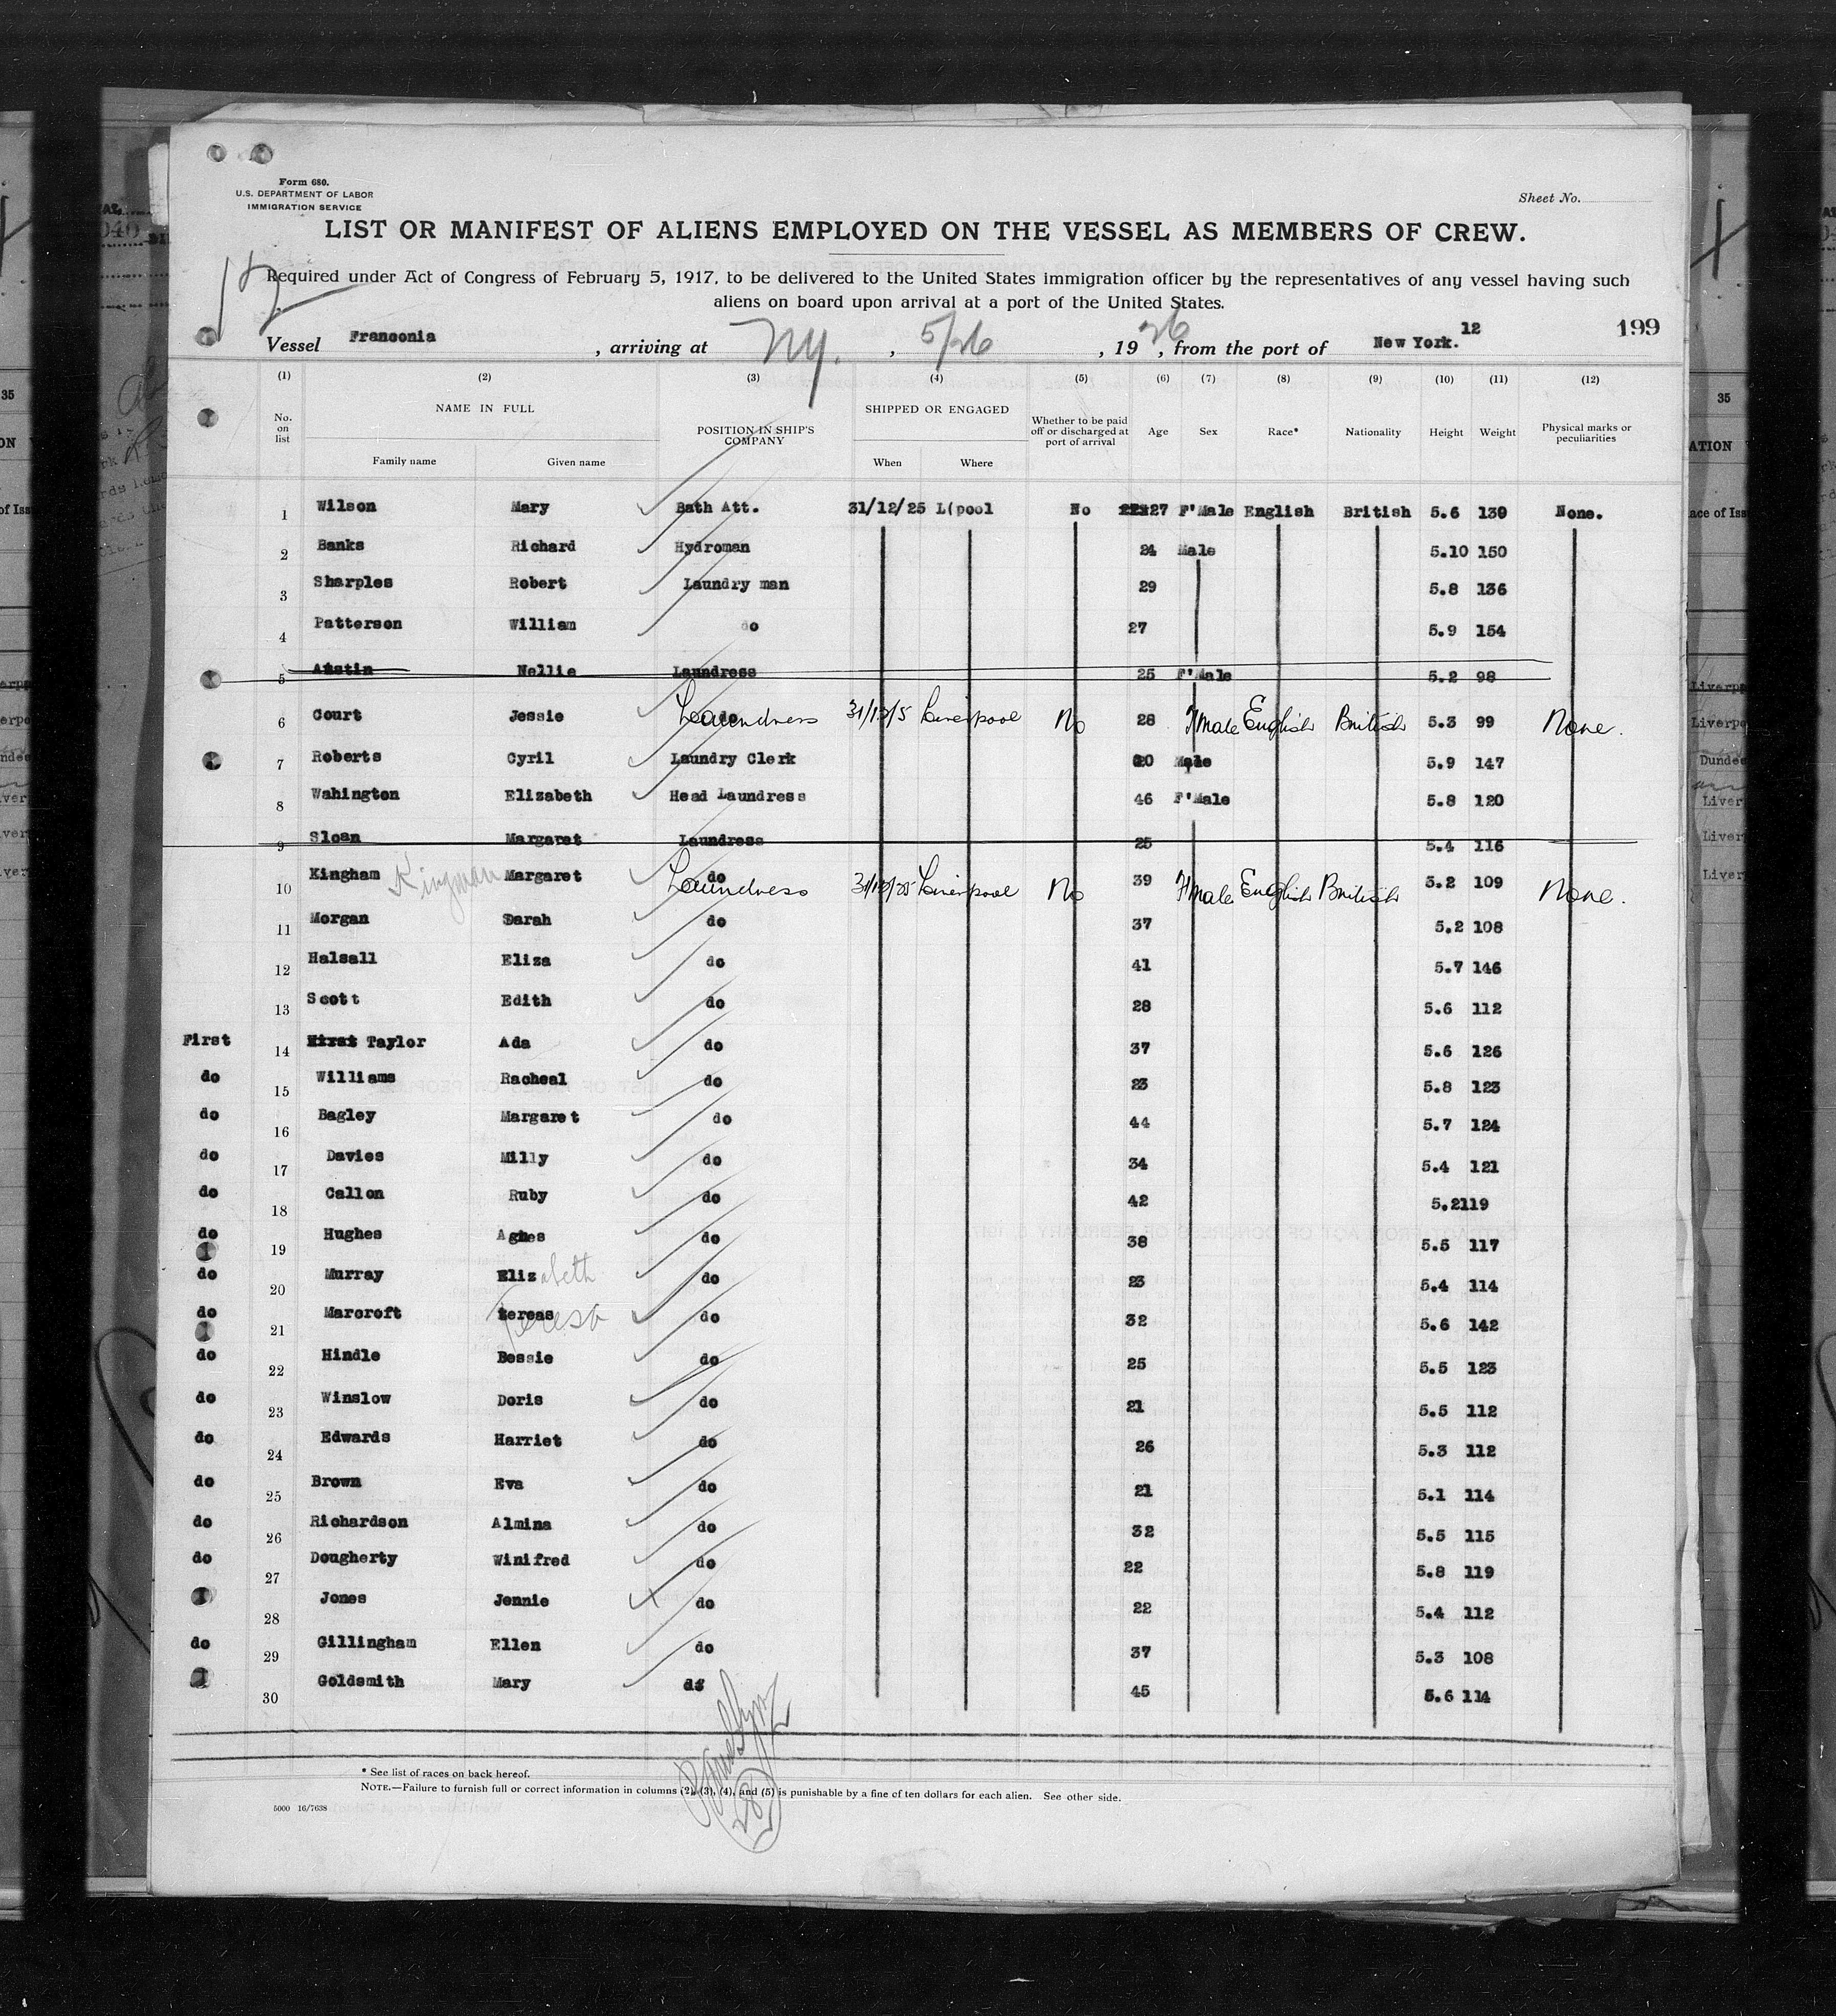 Form 680.
U.S. DEPARTMENT OF LABOR
IMMIGRATION SERVICE
Sheet No.
LIST OR MANIFEST OF ALIENS EMPLOYED ON THE VESSEL AS MEMBERS OF CREW.
12
Required under Act of Congress of February 5, 1917, to be delivered to the United States immigration officer by the representatives of any vessel having such
aliens on board upon arrival at a port of the United States.
Vessel Franconia, arriving at NY., 5/26, 1926, from the port of New York. 12 199
(1) (2) (3) (4) (5) (6) (7) (8) (9) (10) (11) (12)
No. on list NAME IN FULL POSITION IN SHIP'S COMPANY SHIPPED OR ENGAGED Whether to be paid off or discharged at port of arrival Age Sex Race* Nationality Height Weight Physical marks or peculiarities
Family name Given name When Where
1 Wilson Mary Bath Att. 31/12/25 L(pool No 27 F'Male English British 5.6 139 None.
2 Banks Richard Hydroman 24 Male 5.10 150
3 Sharples Robert Laundry man 29 5.8 136
4 Patterson William do 27 5.9 154
5 Austin Nellie Laundress 25 F'Male 5.2 98
6 Court Jessie Laundress 31/12/5 Liverpool No 28 Fmale English British 5.3 99 None.
7 Roberts Cyril Laundry Clerk 20 Male 5.9 147
8 Wahington Elizabeth Head Laundress 46 F'Male 5.8 120
9 Sloan Margaret Laundress 25 5.4 116
10 Kingham Kingman Margaret do Laundress 31/12/25 Liverpool No 39 Fmale English British 5.2 109 None.
11 Morgan Sarah do 37 5.2 108
12 Halsall Eliza do 41 5.7 146
13 Scott Edith do 28 5.6 112
First 14 Taylor Ada do 37 5.6 126
do 15 Williams Racheal do 23 5.8 123
do 16 Bagley Margaret do 44 5.7 124
do 17 Davies Milly do 34 5.4 121
do 18 Callon Ruby do 42 5.2 119
do 19 Hughes Agnes do 38 5.5 117
do 20 Murray Elizabeth do 23 5.4 114
do 21 Marcroft tereas Teresa do 32 5.6 142
do 22 Hindle Bessie do 25 5.5 123
do 23 Winslow Doris do 21 5.5 112
do 24 Edwards Harriet do 26 5.3 112
do 25 Brown Eva do 21 5.1 114
do 26 Richardson Almina do 32 5.5 115
do 27 Dougherty Winifred do 22 5.8 119
28 Jones Jennie do 22 5.4 112
do 29 Gillingham Ellen do 37 5.3 108
30 Goldsmith Mary do 45 5.6 114
* See list of races on back hereof.
NOTE.—Failure to furnish full or correct information in columns (2), (3), (4), and (5) is punishable by a fine of ten dollars for each alien. See other side.
5000 16/7638
28